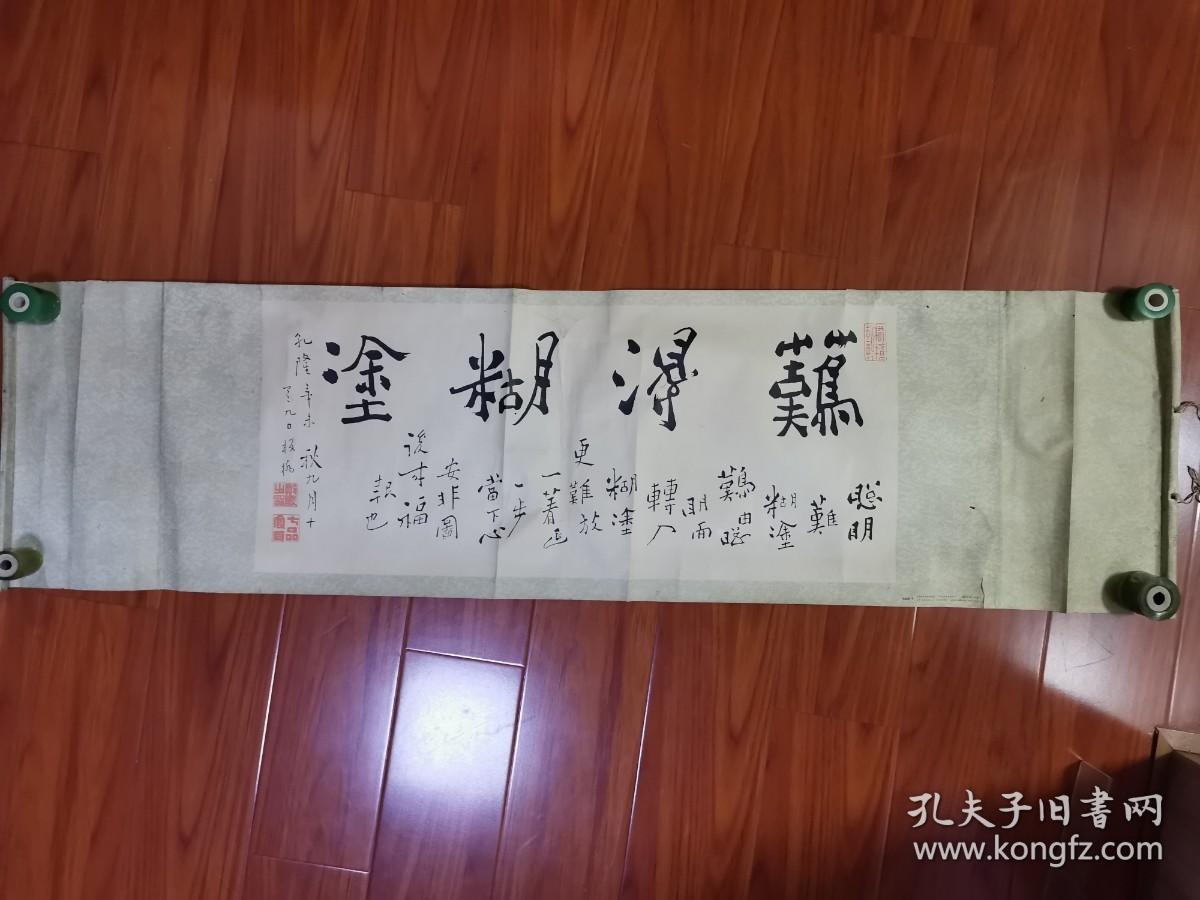 難得糊塗
聰明
難
糊塗
難由聰
明而
轉入
糊塗
更難放
一著退
一步
當下心
安非圖
後來福
報也
乾隆辛未秋九月十
有九日板橋
七品官耳
孔夫子旧書网
www.kongfz.com